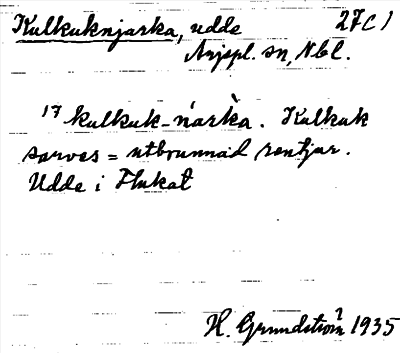 Kulkuknjarka, udde 27C1
Anjspl. sn, Nbl.
17 kulkuk-ńarkà. Kulkuk
sarves = utbrunnad rentjur.
Udde i Flukat
H. Grundström 1935